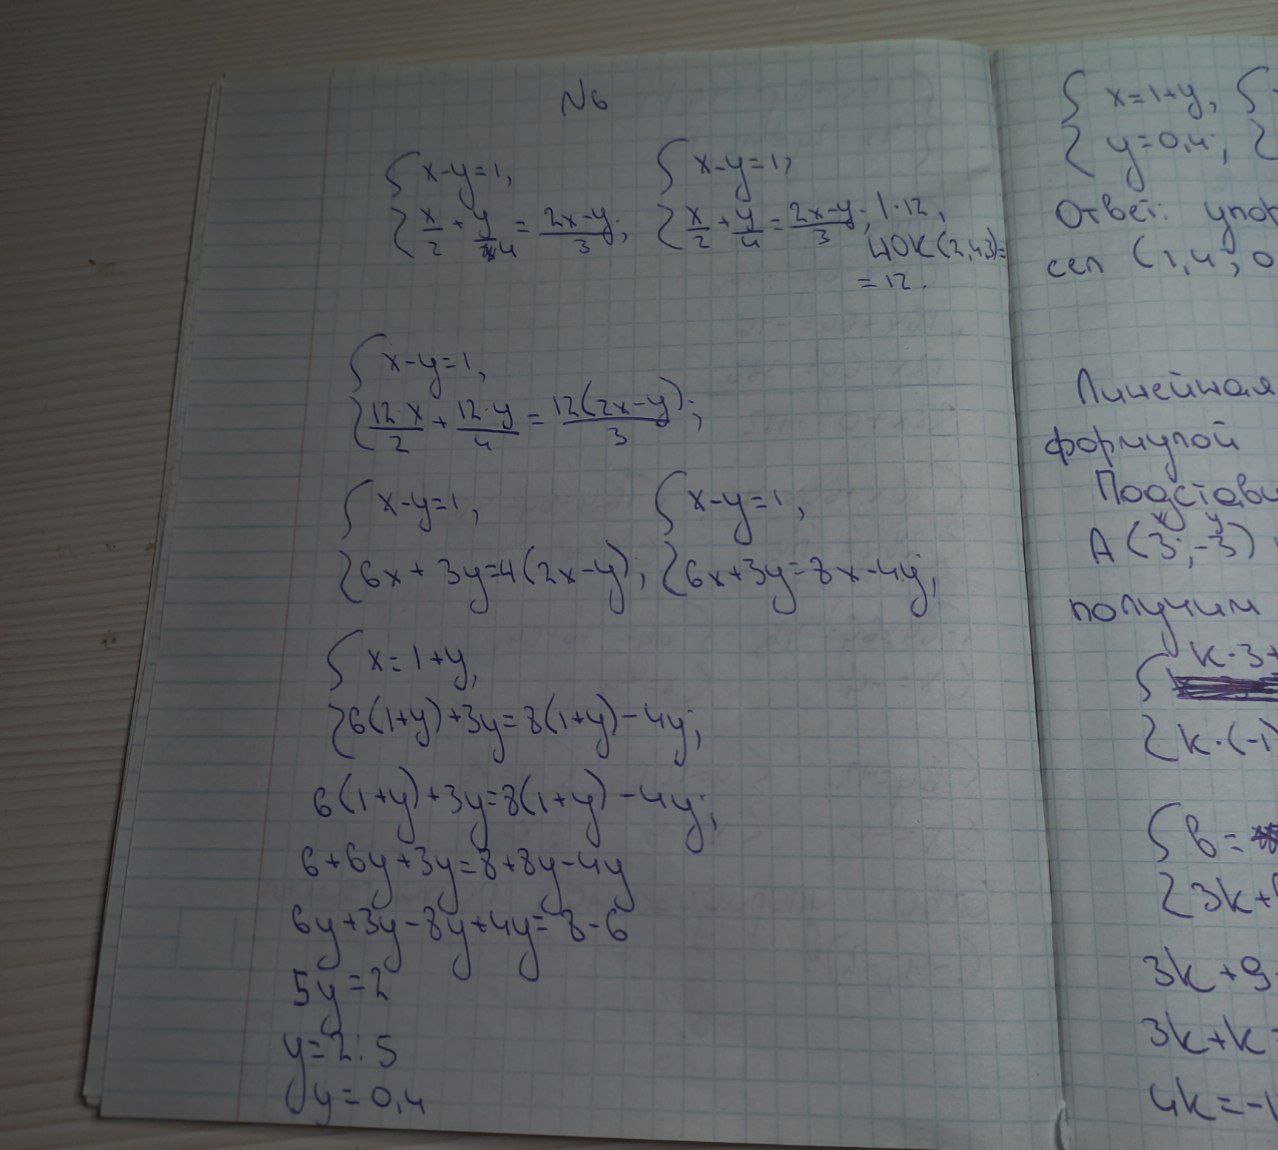 N6
{ x-y=1,
{ x/2 + y/4 = (2x-y)/3;
{ x-y=1,
{ x/2 + y/4 = (2x-y)/3; |·12,
НОК(2,4,3)=
=12.
{ x-y=1,
{ 12·x/2 + 12·y/4 = 12(2x-y)/3;
{ x-y=1,
{ 6x+3y=4(2x-y);
{ x-y=1,
{ 6x+3y=8x-4y;
{ x=1+y,
{ 6(1+y)+3y=8(1+y)-4y;
6(1+y)+3y=8(1+y)-4y;
6+6y+3y=8+8y-4y
6y+3y-8y+4y=8-6
5y=2
y=2:5
y=0,4
{ x=1+y,
{ y=0,4;
Ответ: упор
сел (1,4; 0
Линейная
формулой
Подстави
x y
A(3;-3)
получим
{ k·3+
{ k·(-1)
{ b=
{ 3k+
3k+9
3k+k
4k=-1